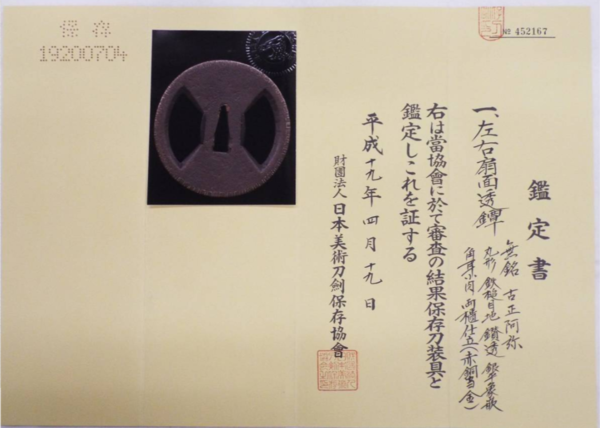 保存
19200704
№ 452167
鑑定書
一、左右扇面透鐔
無銘 古正阿弥
丸形 鉄槌目地 鑚透 銀象嵌
角耳小肉 両櫃仕立(赤銅当金)
右は當協會に於て審査の結果保存刀装具と
鑑定しこれを証する
平成十九年四月十九日
財團法人 日本美術刀劍保存協會